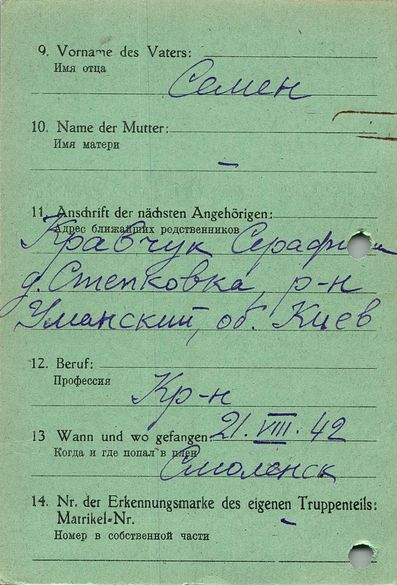 9. Vorname des Vaters:
Имя отца
Семен
10. Name der Mutter:
Имя матери
–
11. Anschrift der nächsten Angehörigen:
Адрес ближайших родственников
Кравчук
д. Степковка, р-н
Уманский, об. Киев
12. Beruf:
Профессия
Кр-н
13 Wann und wo gefangen: 21. VIII. 42
Когда и где попал в плен
Смоленск
14. Nr. der Erkennungsmarke des eigenen Truppenteils:
Matrikel-Nr. –
Номер в собственной части